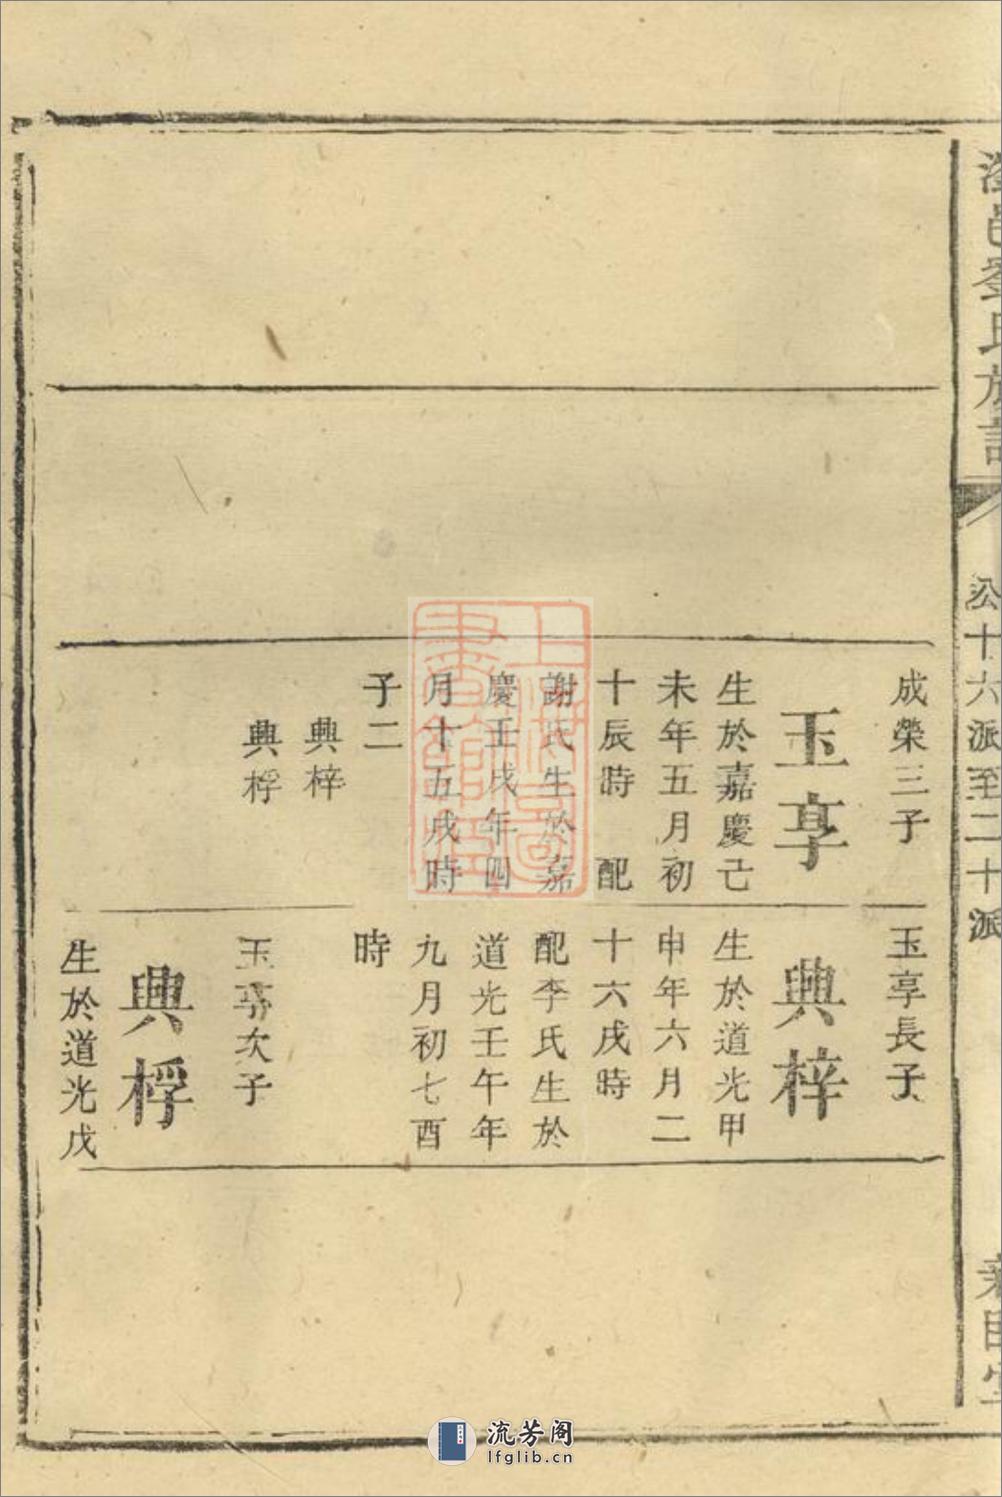 公十六派至二十派
成榮三子
玉享
生於嘉慶己
未年五月初
十辰時 配
謝氏生於嘉
慶壬戌年四
月十五戌時
子二
興梓
興桴
玉享長子
興梓
生於道光甲
申年六月二
十六戌時
配李氏生於
道光壬午年
九月初七酉
時
玉享次子
興桴
生於道光戊
上海圖書館藏
流芳阁
lfglib.cn